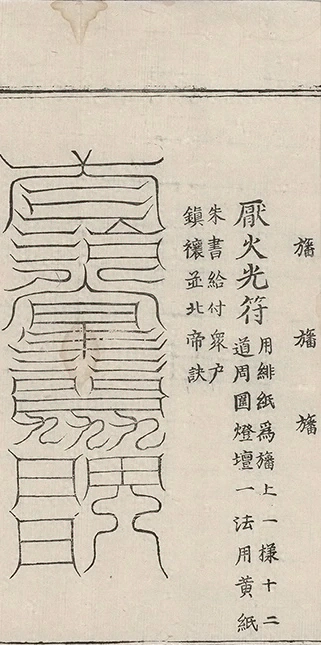 旛 旛 旛
厭火光符 用緋紙爲旛上一樣十二
道周圍燈壇一法用黄紙
朱書給付衆户
鎮禳並北帝訣